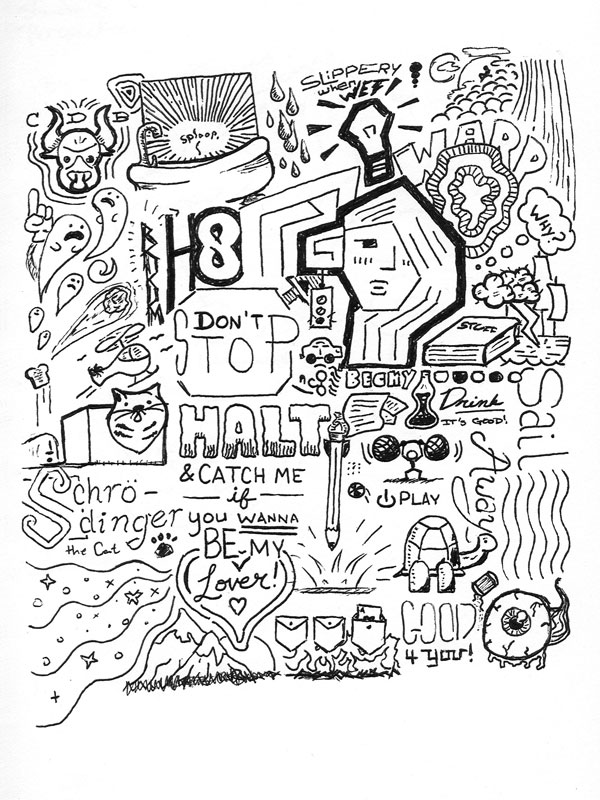 SLIPPERY
when
WET!
C D B
sploop.
WARP
WHY?
H8
DON'T
STOP
STUFF
BECKY
Drink
IT'S GOOD!
HALT
& CATCH ME
if
you WANNA
BE MY
Lover!
Sail
Away
PLAY
Schrö-
dinger
the Cat
GOOD
4 you!